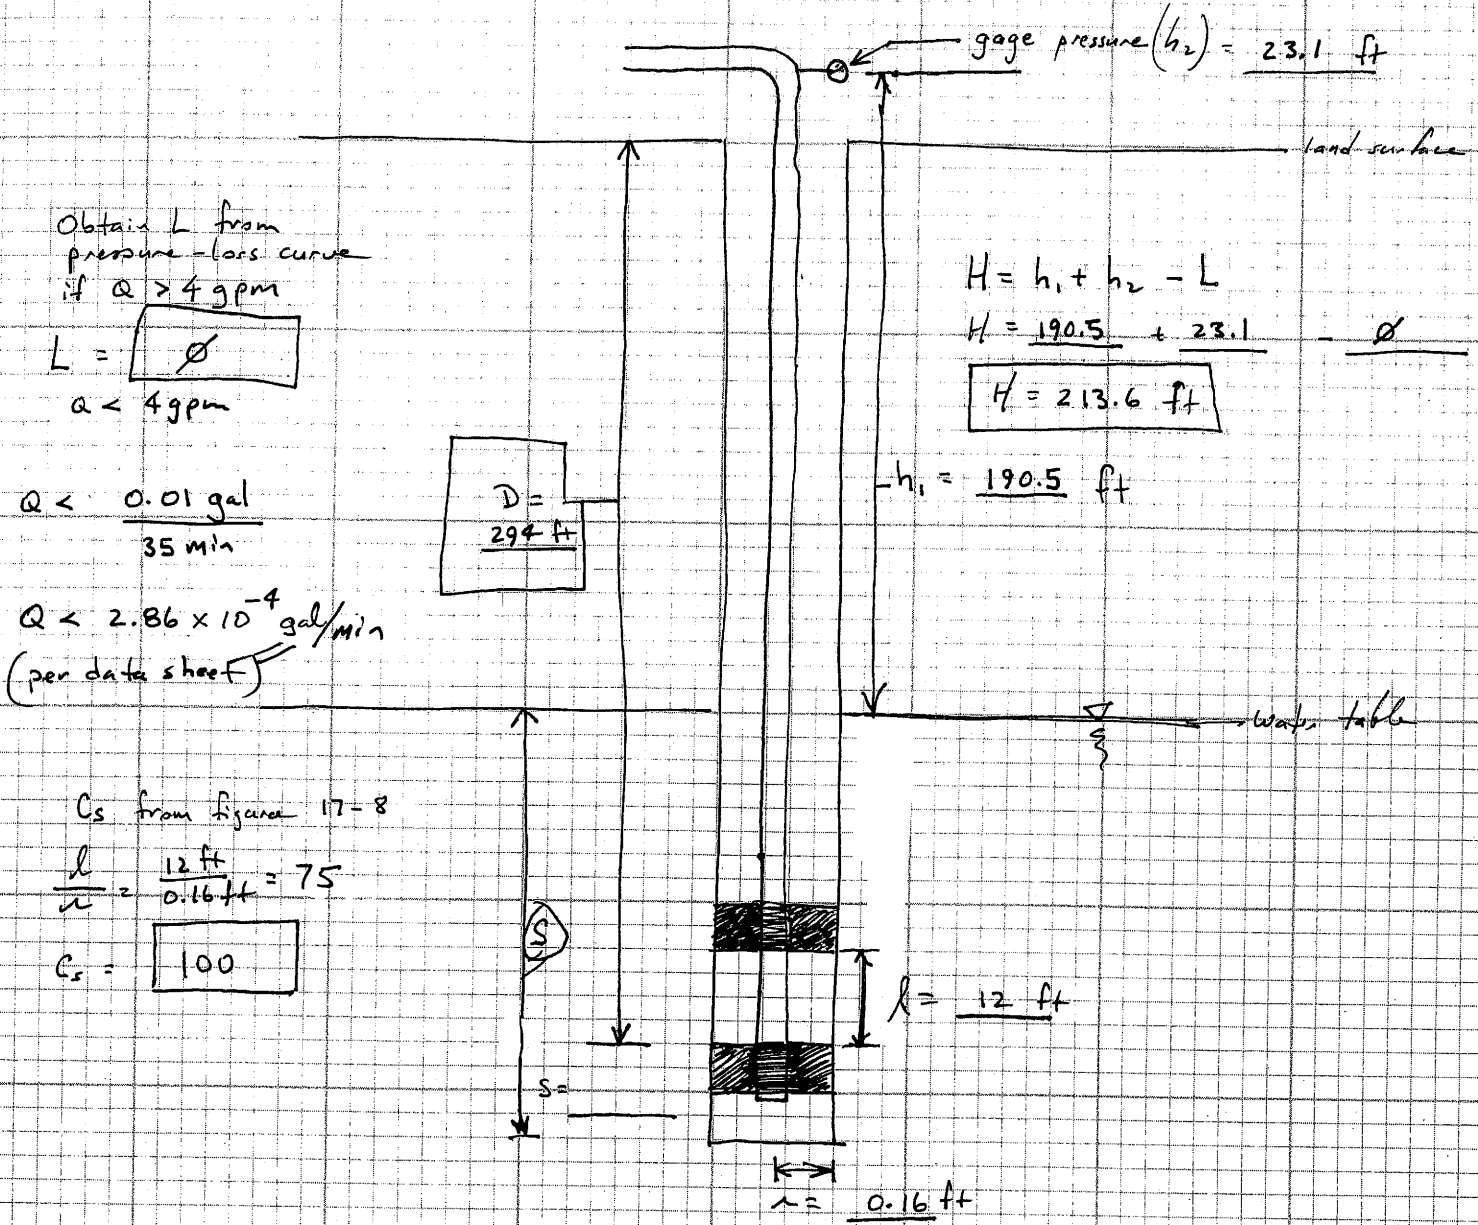 gage pressure (h₂) = 23.1 ft
land surface
Obtain L from
pressure-loss curve
if Q > 4 gpm
L = Ø
Q < 4 gpm
H = h₁ + h₂ - L
H = 190.5 + 23.1 - Ø
H = 213.6 ft
h₁ = 190.5 ft
D =
294 ft
Q < 0.01 gal
35 min
Q < 2.86 × 10⁻⁴ gal/min
(per data sheet)
water table
Cs from figure 17-8
l/r = 12 ft/0.16 ft = 75
Cs = 100
S
l = 12 ft
S=
r = 0.16 ft